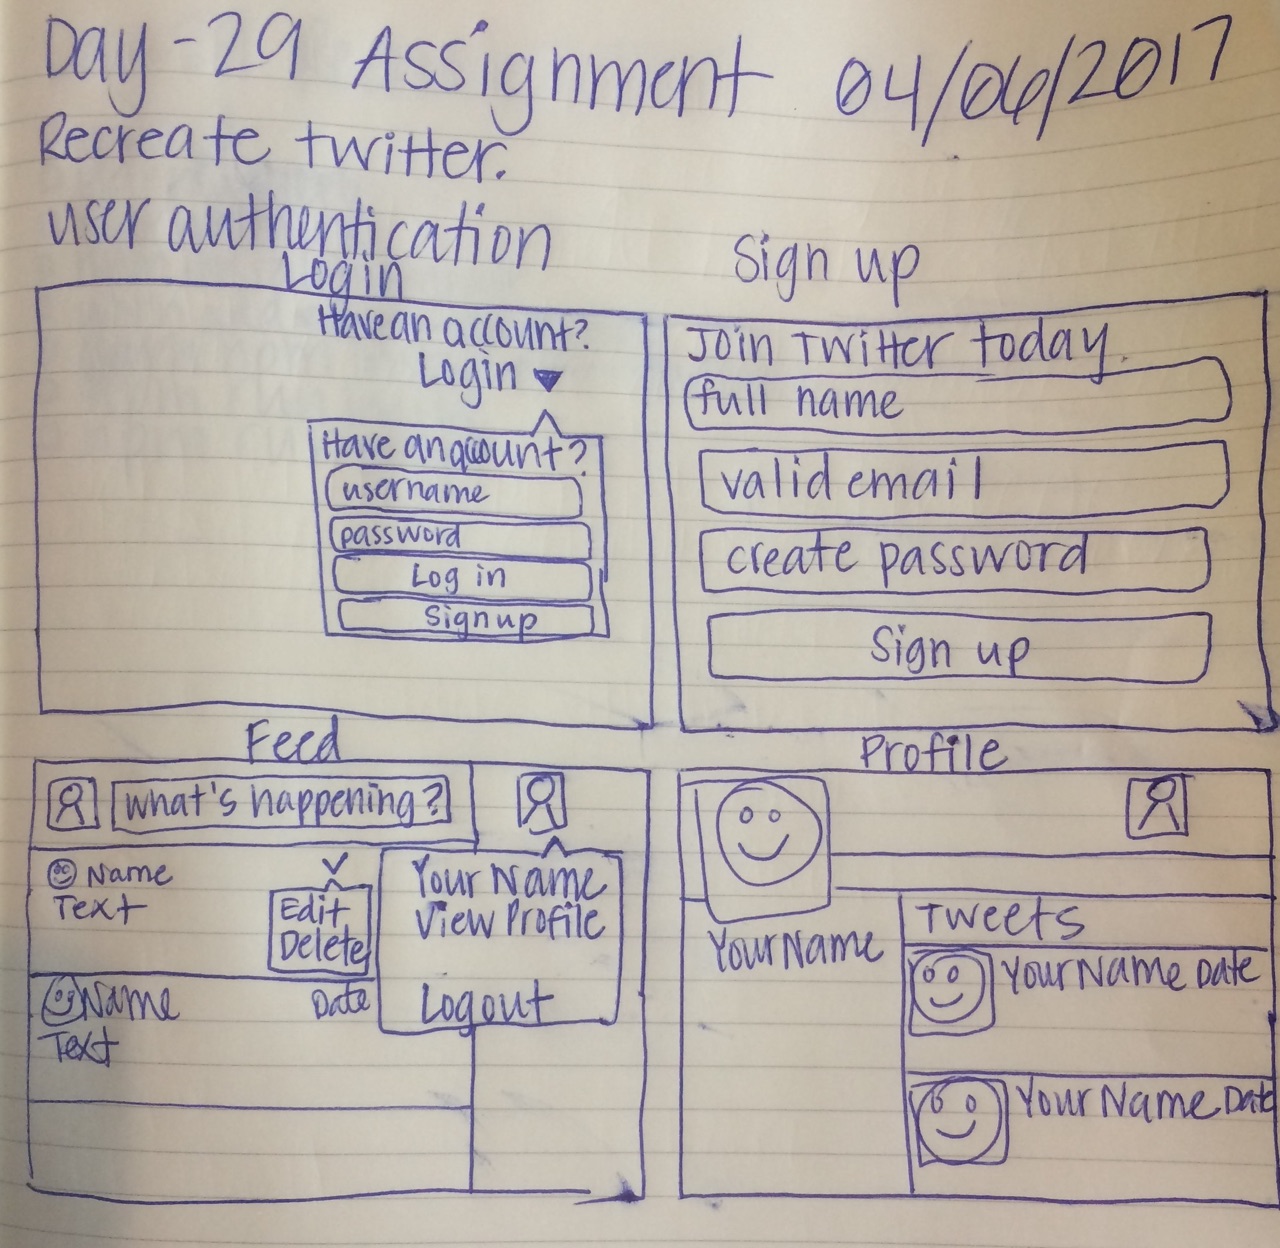 Day-29 Assignment 04/06/2017
Recreate twitter.
user authentication
Login
Have an account?
Login
Have an account?
username
password
Log in
Sign up
Sign up
Join Twitter today.
full name
valid email
create password
Sign up
Feed
what's happening?
Name
Text
Edit
Delete
Your Name
View Profile
Logout
Name Date
Text
Profile
Your Name
Tweets
Your Name Date
Your Name Date